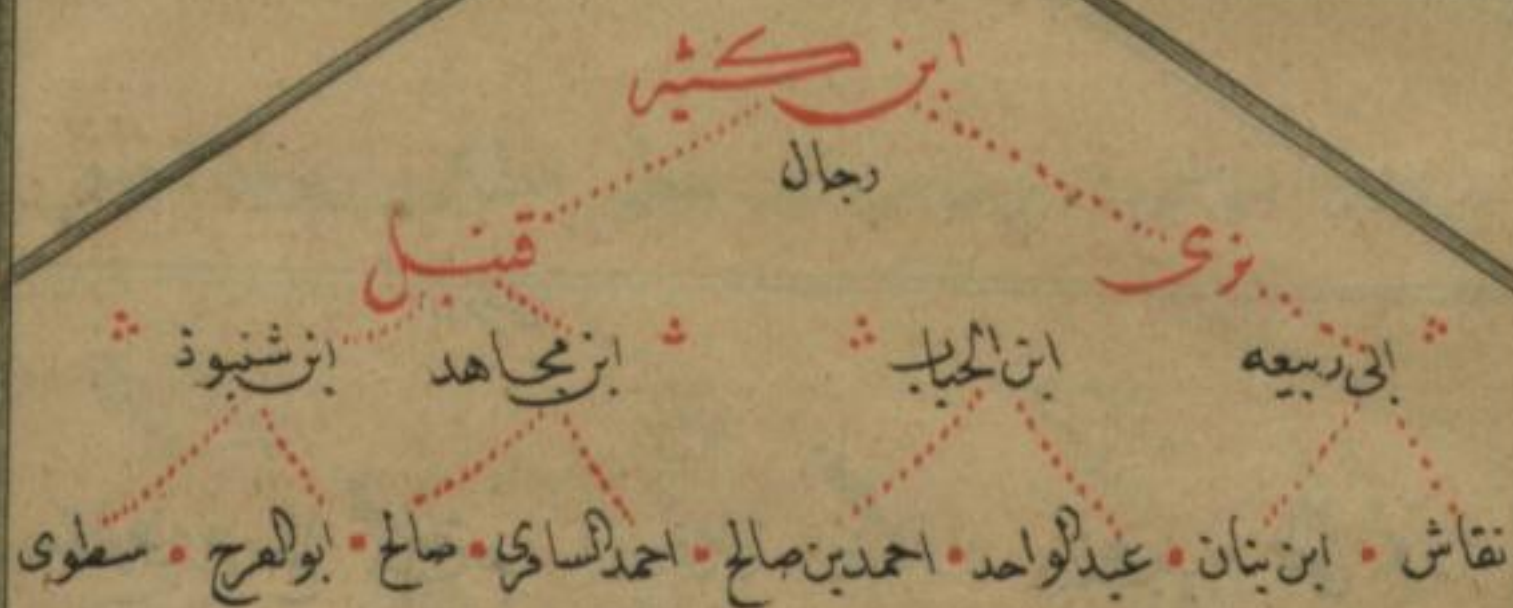 ابن كثير
رجال
بزی قنبل
ابی ربیعه ابن الحباب ابن مجاهد ابن شنبوذ
نقاش • ابن بنان • عبد الواحد • احمد بن صالح • احمد السامری • صالح • ابو الفرج • سطوی